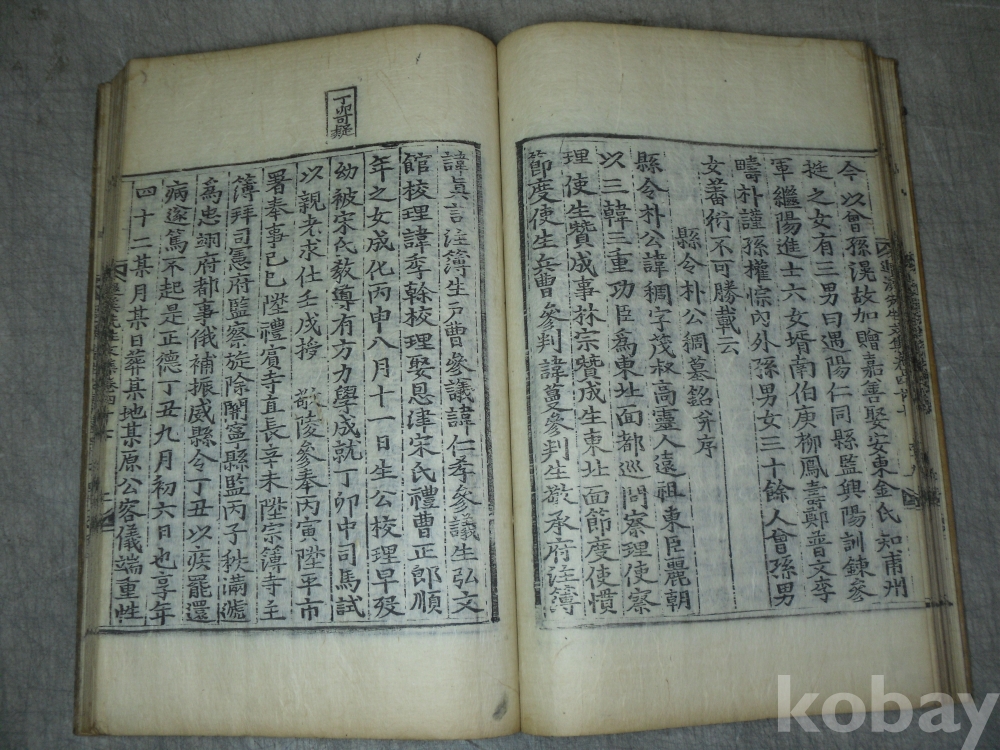 今以曾孫滉故加贈嘉善娶安東金氏知甫州
挺之女有三男曰遇陽仁同縣監興陽訓鍊參
軍繼陽進士六女婿南伯庚柳鳳壽鄭普文李
疇朴謹孫權悰內外孫男女三十餘人曾孫男
女蕃衍不可勝載云
縣令朴公稠墓銘幷序
縣令朴公諱稠字茂叔高靈人遠祖東臣麗朝
以三韓三重功臣爲東北面都巡問察理使察
理使生贊成事林宗贊成生東北面節度使慣
節度使生兵曹參判諱蔓參判生敬承府注簿
丁卯可疑
諱眞言注簿生戶曹參議諱仁孝參議生弘文
館校理諱季幹校理娶恩津宋氏禮曹正郎順
年之女成化丙申八月十一日生公校理早歿
幼被宋氏敎導有方力學成就丁卯中司馬試
以親老求仕壬戌授 敬陵參奉丙寅陞平市
署奉事己巳陞禮賓寺直長辛未陞宗簿寺主
簿拜司憲府監察旋除開寧縣監丙子秩滿遞
爲忠翊府都事俄補振威縣令丁丑以疾罷還
病遂篤不起是正德丁丑九月初六日也享年
四十二某月某日葬某地某原公容儀端重性
kobay